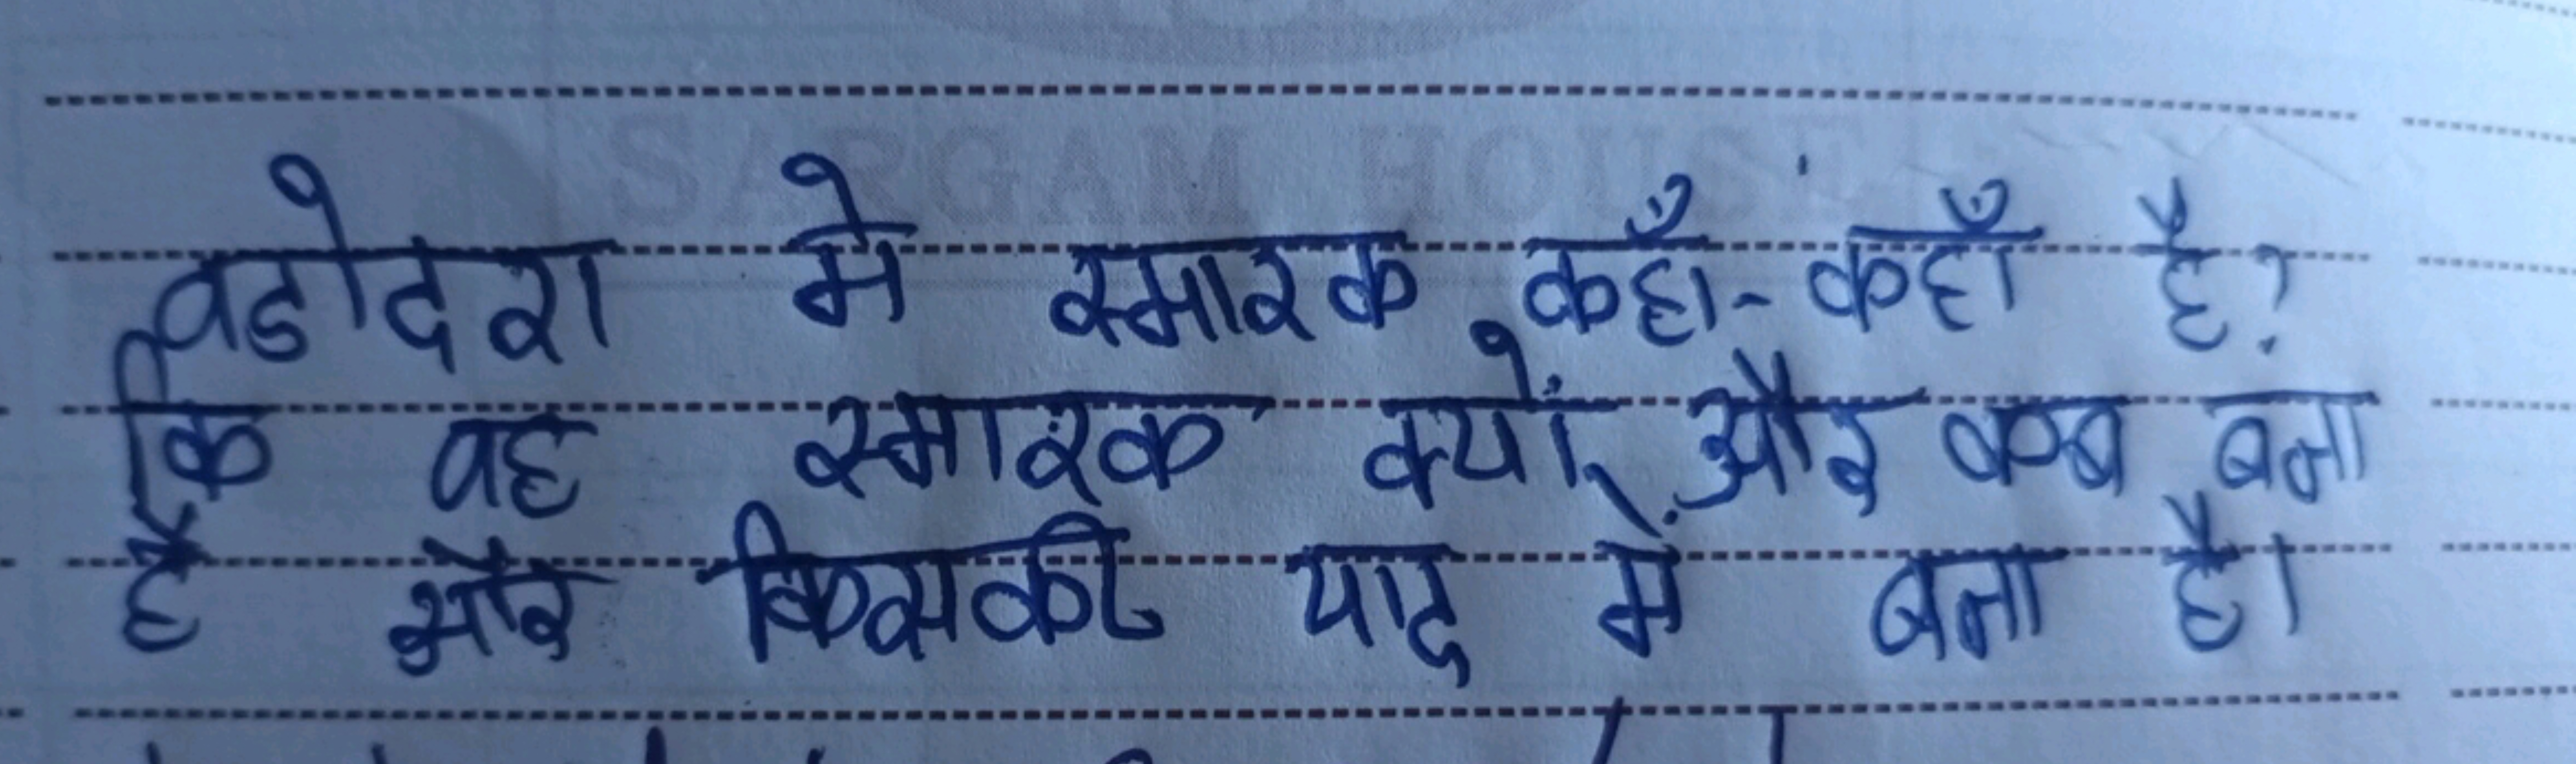 SARGAM HOUSE
वडोदरा में स्मारक कहाँ-कहाँ है?
कि वह स्मारक क्यों, और कब बना
है और किसकी याद में बना है।